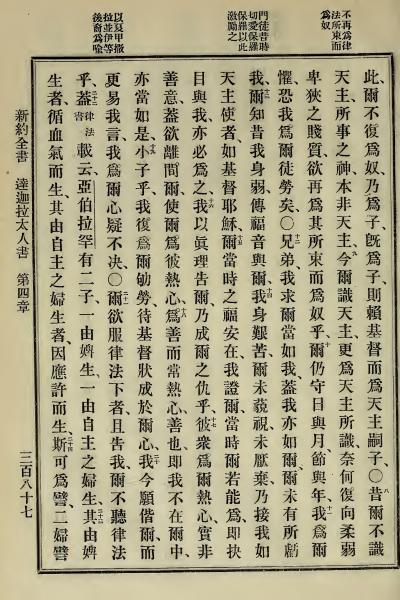 不再爲律
法所束而
爲奴
門徒昔時
切愛保羅
保羅以此
激勵之
以夏甲撒
拉並伊等
後裔爲喻
此爾不復爲奴乃爲子旣爲子則賴基督而爲天主嗣子〇八昔爾不識
天主所事之神本非天主九今爾識天主更爲天主所識奈何復向柔弱
卑狹之賤質欲再爲其所束而爲奴乎十爾仍守日與月節與年十一我爲爾
懼恐我爲爾徒勞矣〇十二兄弟我求爾當如我蓋我亦如爾爾未有所虧
我十三爾知昔我身弱傳福音與爾十四我身艱苦爾未藐視未厭棄乃接我如
天主使者如基督耶穌十五爾當時之福安在我證爾當時爾若能爲卽抉
目與我亦必爲之十六我以眞理告爾乃成爾之仇乎十七彼衆爲爾熱心實非
善意蓋欲離間爾使爾爲彼熱心十八爲善而常熱心善也卽我不在爾中
亦當如是十九小子乎我復爲爾劬勞待基督狀成於爾心二十我今願偕爾而
更易我言我爲爾心疑不决〇二十一爾欲服律法下者且告我爾不聽律法
乎二十二蓋律法書載云亞伯拉罕有二子一由婢生一由自主之婦生二十三其由婢
生者循血氣而生其由自主之婦生者因應許而生二十四斯可爲譬二婦譬
新約全書　達迦拉太人書　第四章　三百八十七